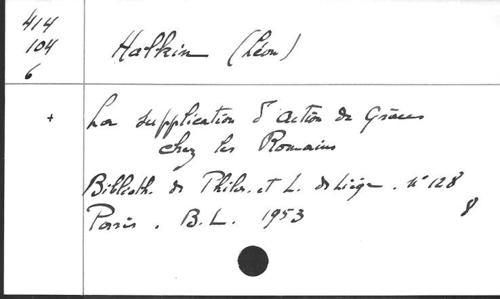 414
104
6
Halkin (Léon)
+
La supplication d'action de Grâces
chez les Romains
Biblioth. de Philos. et L. de Liège. n° 128
Paris. B.L. 1953
8